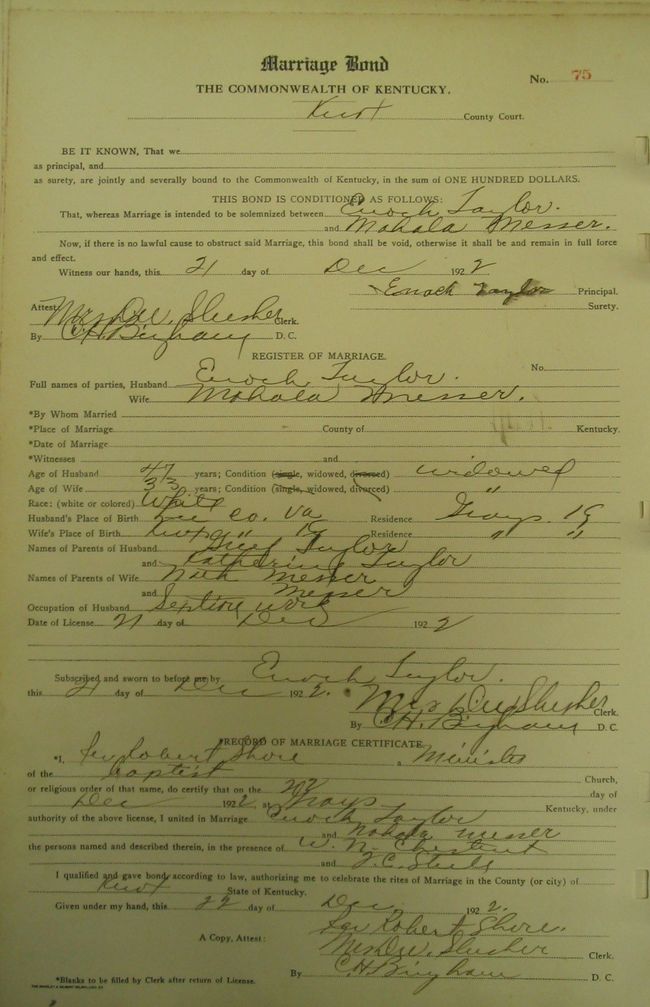 Marriage Bond
No. 75
THE COMMONWEALTH OF KENTUCKY.
Knox County Court.
BE IT KNOWN, That we
as principal, and
as surety, are jointly and severally bound to the Commonwealth of Kentucky, in the sum of ONE HUNDRED DOLLARS.
THIS BOND IS CONDITIONED AS FOLLOWS:
That, whereas Marriage is intended to be solemnized between Enoch Taylor.
and Mahala Messer.
Now, if there is no lawful cause to obstruct said Marriage, this bond shall be void, otherwise it shall be and remain in full force
and effect.
Witness our hands, this 21 day of Dec 1922
Enoch Taylor Principal.
Surety.
Attest: Mrs D.W. Slusher Clerk.
By C.H. Bingham D. C.
REGISTER OF MARRIAGE.
No.
Full names of parties, Husband Enoch Taylor.
Wife Mahala Messer.
*By Whom Married
*Place of Marriage County of Kentucky.
*Date of Marriage
*Witnesses and
Age of Husband 47 years; Condition (single, widowed, divorced) widowed
Age of Wife 33 years; Condition (single, widowed, divorced) "
Race: (white or colored) White
Husband's Place of Birth Lee Co. Va Residence Grays Ky
Wife's Place of Birth Knox Ky Residence " "
Names of Parents of Husband Taylor
and Catherine Taylor
Names of Parents of Wife Nath Messer
and Messer
Occupation of Husband Section work
Date of License 21 day of Dec 1922
Subscribed and sworn to before me by Enoch Taylor.
this 21 day of Dec 1922.
Mrs D.W. Slusher Clerk.
By C.H. Bingham D. C.
*RECORD OF MARRIAGE CERTIFICATE
*I, Robert Shore a Minister
of the Baptist Church,
or religious order of that name, do certify that on the 22 day of
Dec 1922, at Grays Kentucky, under
authority of the above license, I united in Marriage Enoch Taylor
and Mahala Messer
the persons named and described therein, in the presence of W. N. Chestnut
and J.C.
I qualified and gave bond, according to law, authorizing me to celebrate the rites of Marriage in the County (or city) of
Knox State of Kentucky.
Given under my hand, this 22 day of Dec. 1922.
Robert Shore.
A Copy, Attest: Mrs D.W. Slusher Clerk.
By C.H. Bingham D. C.
*Blanks to be filled by Clerk after return of License.